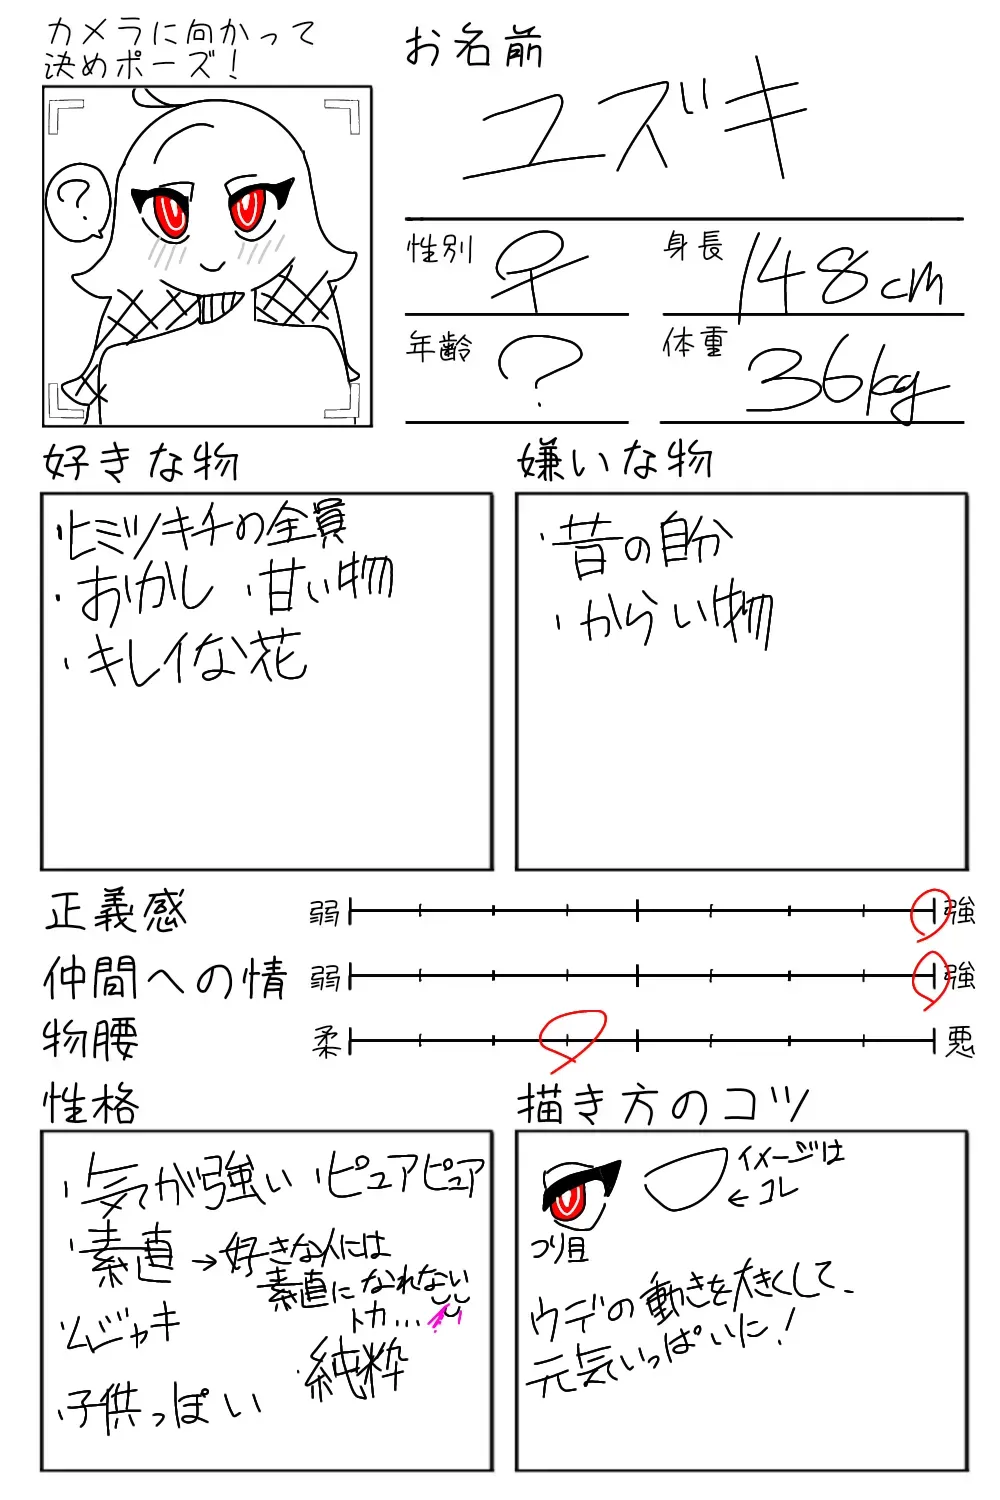 カメラに向かって
決めポーズ！
?
お名前
ユズキ
性別 ♀
身長 148cm
年齢 ?
体重 36kg
好きな物
・ヒミツキチの全員
・おかし ・甘い物
・キレイな花
嫌いな物
・昔の自分
・からい物
正義感 弱 強
仲間への情 弱 強
物腰 柔 悪
性格
・気が強い ・ピュアピュア
・素直→好きな人には
素直になれない
トカ...
・ムジャキ
・純粋
・子供っぽい
描き方のコツ
イメージは
←コレ
つり目
ウデの動きを大きくして、
元気いっぱいに！